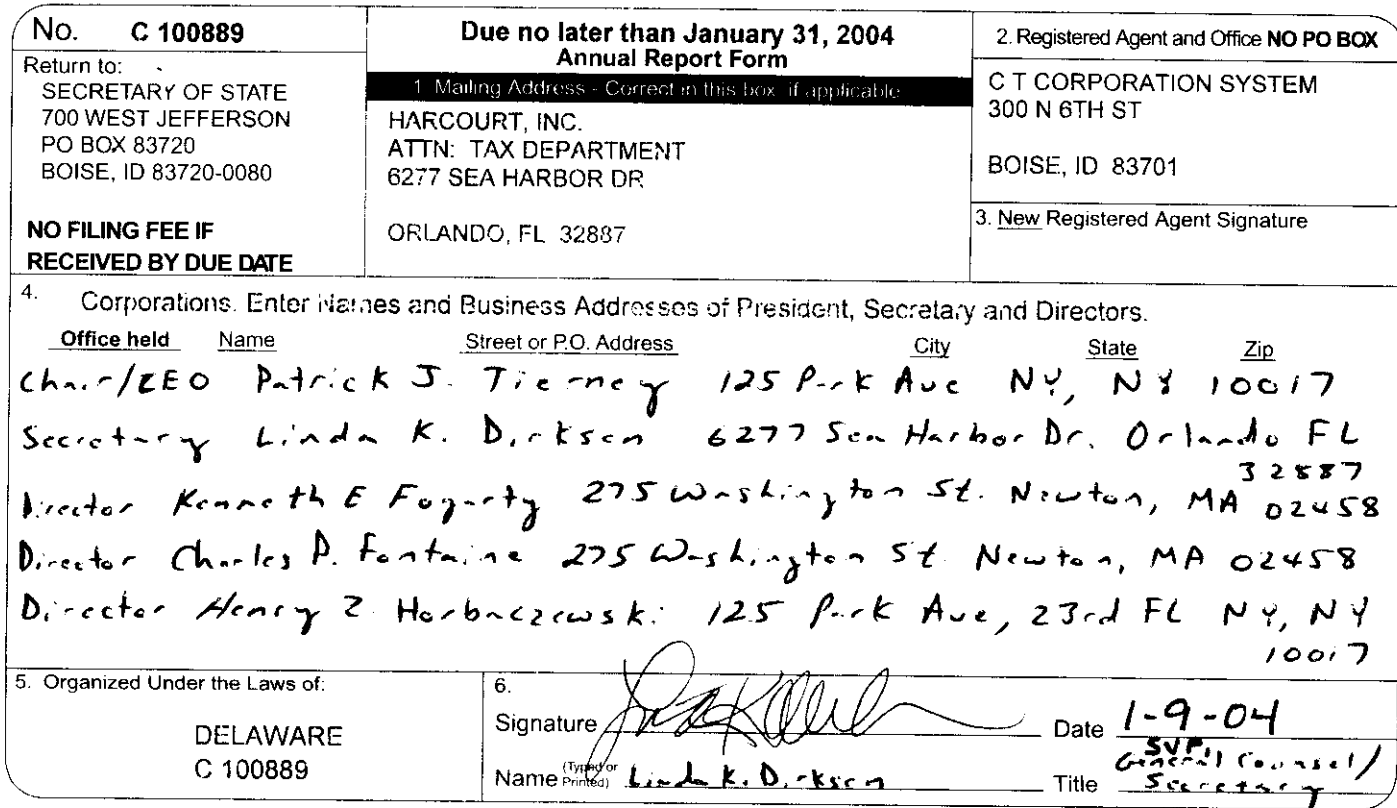 No. C 100889
Return to:
SECRETARY OF STATE
700 WEST JEFFERSON
PO BOX 83720
BOISE, ID 83720-0080
NO FILING FEE IF
RECEIVED BY DUE DATE
Due no later than January 31, 2004
Annual Report Form
1. Mailing Address - Correct in this box, if applicable
HARCOURT, INC.
ATTN: TAX DEPARTMENT
6277 SEA HARBOR DR
ORLANDO, FL 32887
2. Registered Agent and Office NO PO BOX
C T CORPORATION SYSTEM
300 N 6TH ST
BOISE, ID 83701
3. New Registered Agent Signature
4. Corporations. Enter Names and Business Addresses of President, Secretary and Directors.
Office held Name Street or P.O. Address City State Zip
Chair/CEO Patrick J. Tierney 125 Park Ave NY, NY 10017
Secretary Linda K. Dirksen 6277 Sea Harbor Dr. Orlando FL
32887
Director Kenneth E Fogarty 275 Washington St. Newton, MA 02458
Director Charles P. Fontaine 275 Washington St. Newton, MA 02458
Director Henry Z. Horbaczewski 125 Park Ave, 23rd FL NY, NY
10017
5. Organized Under the Laws of:
DELAWARE
C 100889
6.
Signature
Date 1-9-04
Name (Typed or Printed) Linda K. Dirksen
Title SVP, General Counsel/
Secretary